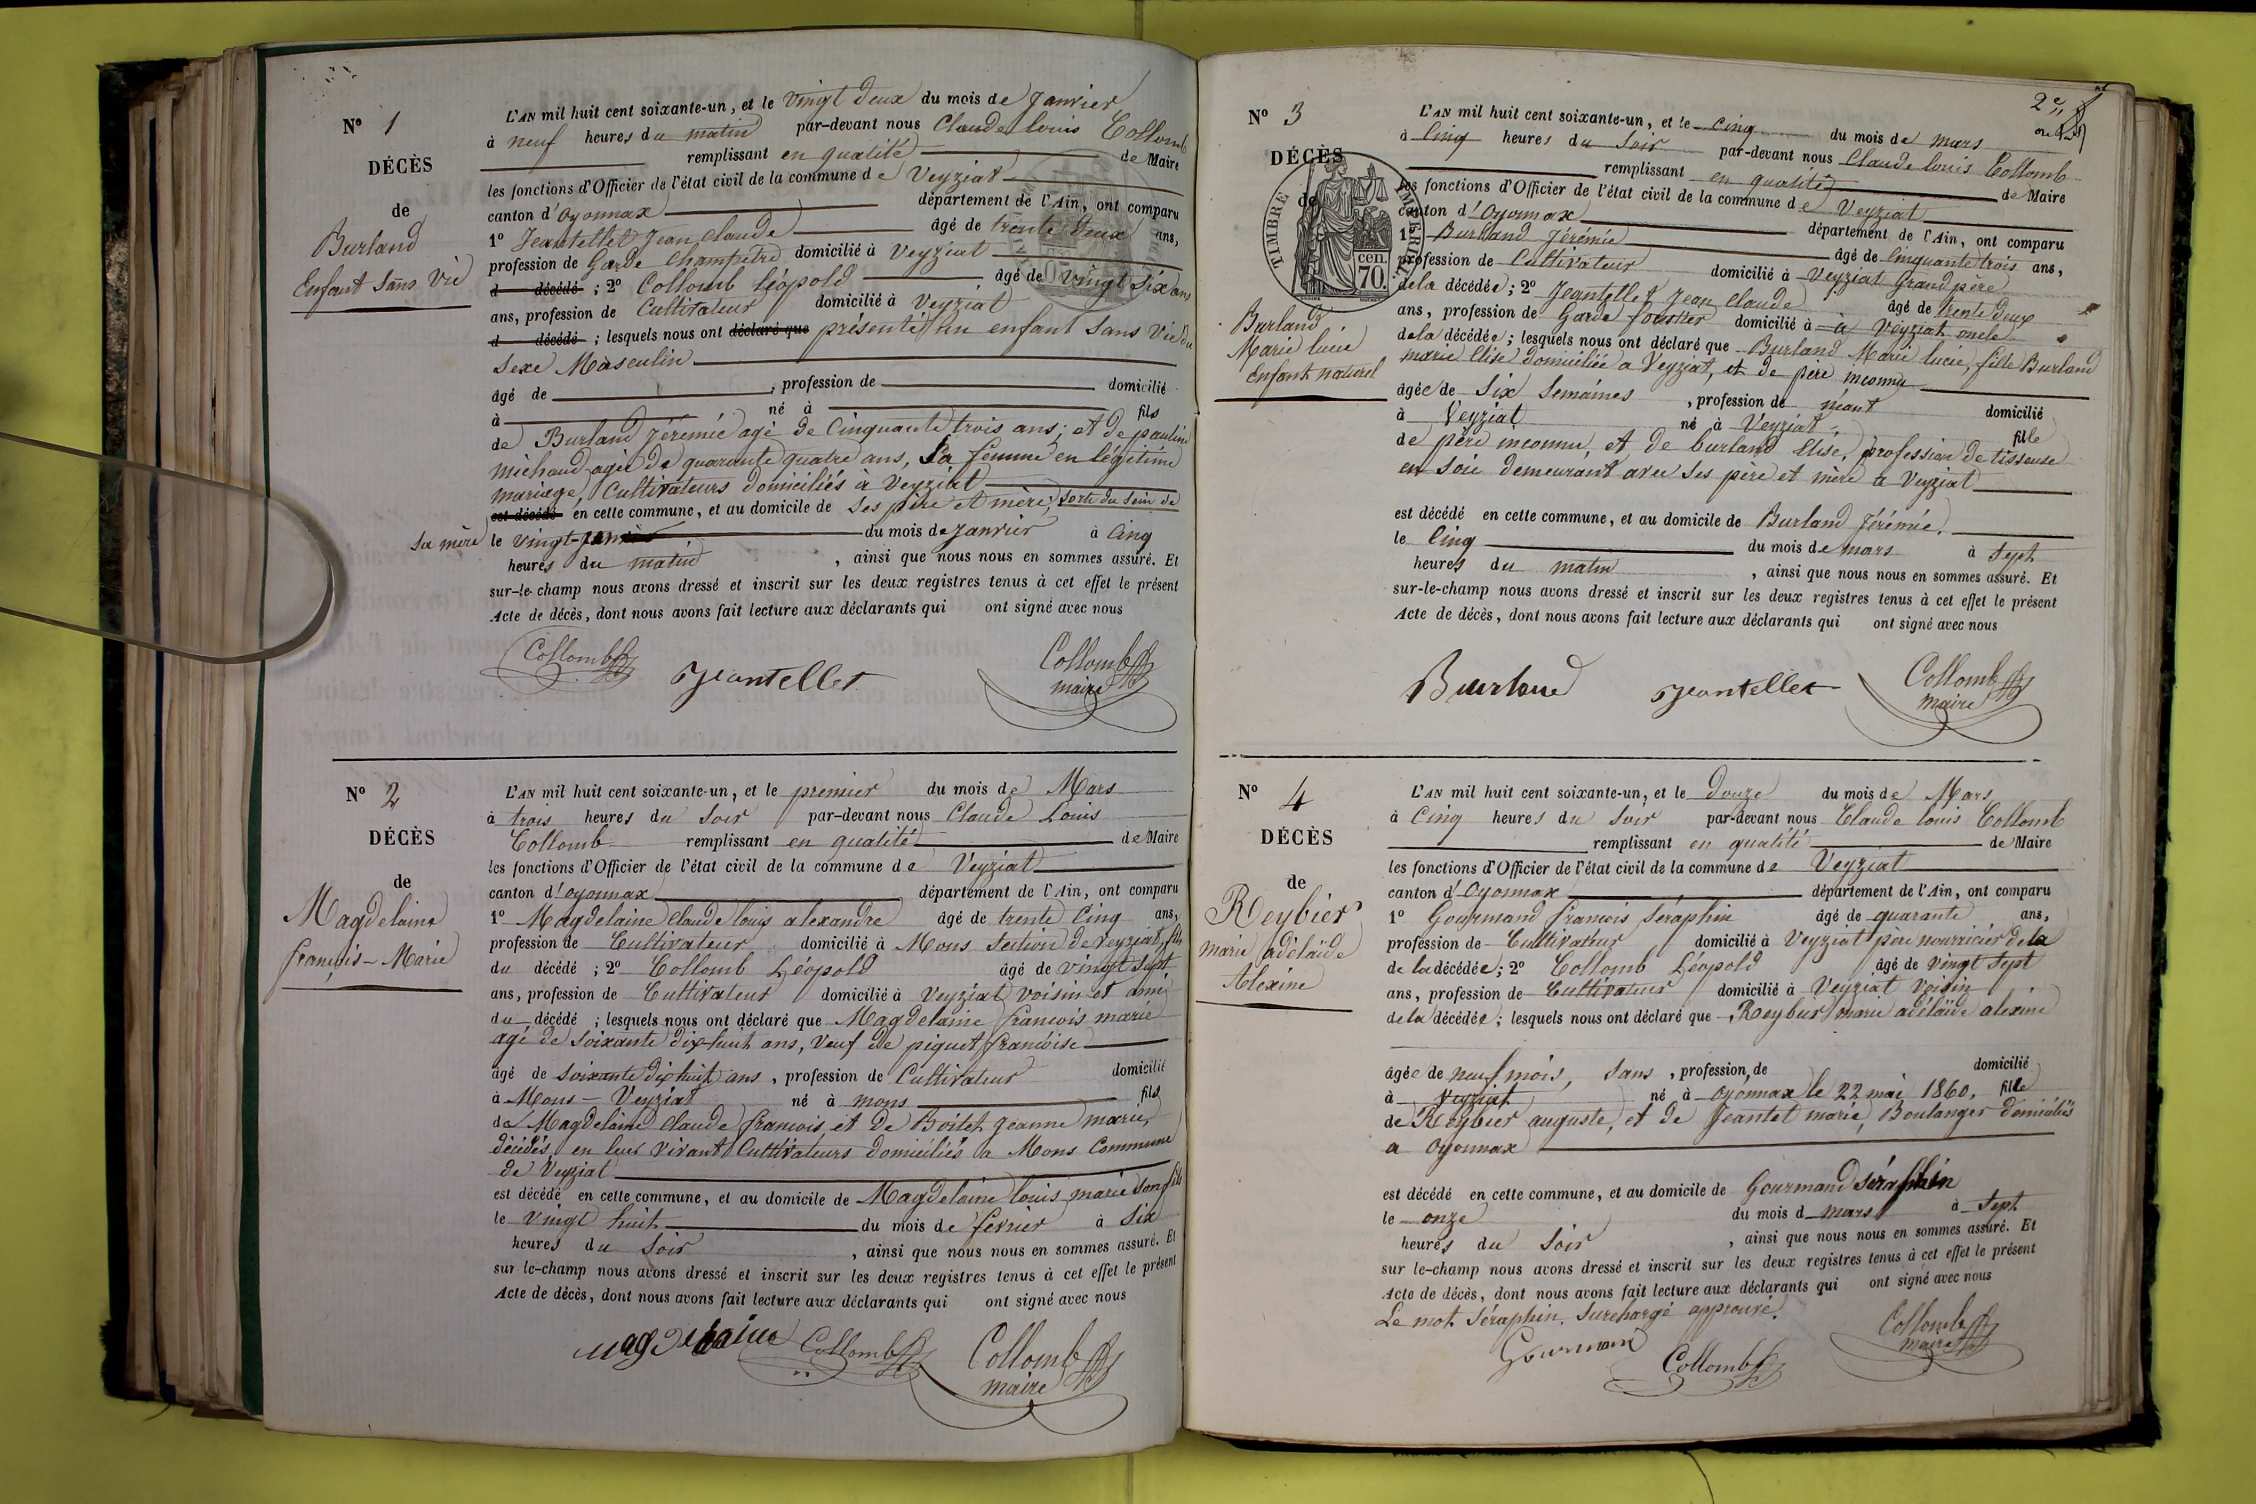 N° 1
DÉCÈS
de
Burland
Enfant sans vie
L'AN mil huit cent soixante-un, et le vingt deux du mois de Janvier
à neuf heures du matin par-devant nous Claude Louis Collomb
remplissant en qualité de Maire
les fonctions d'Officier de l'état civil de la commune de Veyziat
canton d'Oyonnax département de l'Ain, ont comparu
1° Jeantellet Jean Claude âgé de trente deux ans,
profession de Garde Champêtre domicilié à Veyziat
d décédé ; 2° Collomb Léopold âgé de vingt six ans
ans, profession de Cultivateur domicilié à Veyziat
d décédé ; lesquels nous ont déclaré que présenté un enfant sans vie du
sexe Masculin
âgé de , profession de domicilié
à né à fils
de Burland Jérémie agé de Cinquante trois ans ; et de pauline
michaud agée de quarante quatre ans, sa femme en légitime
mariage, Cultivateurs domiciliés à Veyziat
est décédé en cette commune, et au domicile de ses père et mère, sorti du sein de
sa mère le vingt du mois de Janvier à cinq
heures du matin , ainsi que nous nous en sommes assuré. Et
sur-le-champ nous avons dressé et inscrit sur les deux registres tenus à cet effet le présent
Acte de décès, dont nous avons fait lecture aux déclarants qui ont signé avec nous
Collomb Jeantellet Collomb
maire
N° 2
DÉCÈS
de
Magdelaine
françois-Marie
L'AN mil huit cent soixante-un, et le premier du mois de Mars
à trois heures du soir par-devant nous Claude Louis
Collomb remplissant en qualité de Maire
les fonctions d'Officier de l'état civil de la commune de Veyziat
canton d'Oyonnax département de l'Ain, ont comparu
1° Magdelaine Claude louis alexandre âgé de trente Cinq ans,
profession de Cultivateur domicilié à Mons Section de Veyziat, fils
du décédé ; 2° Collomb Léopold âgé de vingt sept
ans, profession de Cultivateur domicilié à Veyziat voisin et ami
du décédé ; lesquels nous ont déclaré que Magdelaine françois marie
agé de soixante dix-huit ans, veuf de piquet françoise
âgé de soixante dix huit ans, profession de Cultivateur domicilié
à Mons - Veyziat né à mons fils
de Magdelaine Claude francois et de Boitet Jeanne marie,
décédés, en leur vivant Cultivateurs domiciliés a Mons Commune
de Veyziat
est décédé en cette commune, et au domicile de Magdelaine louis marie son fils
le vingt huit du mois de février à six
heures du soir , ainsi que nous nous en sommes assuré. Et
sur le-champ nous avons dressé et inscrit sur les deux registres tenus à cet effet le présent
Acte de décès, dont nous avons fait lecture aux déclarants qui ont signé avec nous
magdelaine Collomb Collomb
maire
2e
N° 3
DÉCÈS
de
TIMBRE IMPÉRIAL
cen. 70.
Burland
Marie lucie
enfant naturel
L'AN mil huit cent soixante-un, et le cinq du mois de mars
à Cinq heures du soir par-devant nous Claude louis Collomb
remplissant en qualité de Maire
les fonctions d'Officier de l'état civil de la commune de Veyziat
canton d'Oyonnax département de l'Ain, ont comparu
1° Burland Jérémie âgé de cinquante trois ans,
profession de Cultivateur domicilié à Veyziat Grand père
de la décédée ; 2° Jeantellet Jean Claude âgé de trente deux
ans, profession de Garde forestier domicilié à à Veyziat oncle
de la décédée ; lesquels nous ont déclaré que Burland Marie lucie, fille Burland
marie Elise domiciliée a Veyziat, et de père inconnu
âgée de six semaines , profession de néant domicilié
à Veyziat né à Veyziat fille
de père inconnu, et de burland Elise, profession de tisseuse
en soie demeurant avec ses père et mère a Veyziat
est décédé en cette commune, et au domicile de Burland Jérémie.
le Cinq du mois de mars à sept
heures du matin , ainsi que nous nous en sommes assuré. Et
sur-le-champ nous avons dressé et inscrit sur les deux registres tenus à cet effet le présent
Acte de décès, dont nous avons fait lecture aux déclarants qui ont signé avec nous
Burland Jeantellet Collomb
maire
N° 4
DÉCÈS
de
Reybier
marie adélaïde
Alexine
L'AN mil huit cent soixante-un, et le douze du mois de Mars
à Cinq heures du soir par-devant nous Claude louis Collomb
remplissant en qualité de Maire
les fonctions d'Officier de l'état civil de la commune de Veyziat
canton d'Oyonnax département de l'Ain, ont comparu
1° Gourmand francois Séraphin âgé de quarante ans,
profession de Cultivateur domicilié à Veyziat père nourricier de la
de la décédée ; 2° Collomb Léopold âgé de vingt sept
ans, profession de Cultivateur domicilié à Veyziat voisin
de la décédée ; lesquels nous ont déclaré que Reybier marie adélaïde alexine
âgée de neuf mois, sans , profession, de domicilié
à Veyziat né à oyonnax le 22 mai 1860, fille
de Reybier auguste, et de Jeantet marie, Boulanger domiciliés
a oyonnax
est décédé en cette commune, et au domicile de Gourmand séraphin
le onze du mois d mars à sept
heures du soir , ainsi que nous nous en sommes assuré. Et
sur le-champ nous avons dressé et inscrit sur les deux registres tenus à cet effet le présent
Acte de décès, dont nous avons fait lecture aux déclarants qui ont signé avec nous
Le mot Séraphin, surchargé approuvé.
Gourmand Collomb Collomb
maire